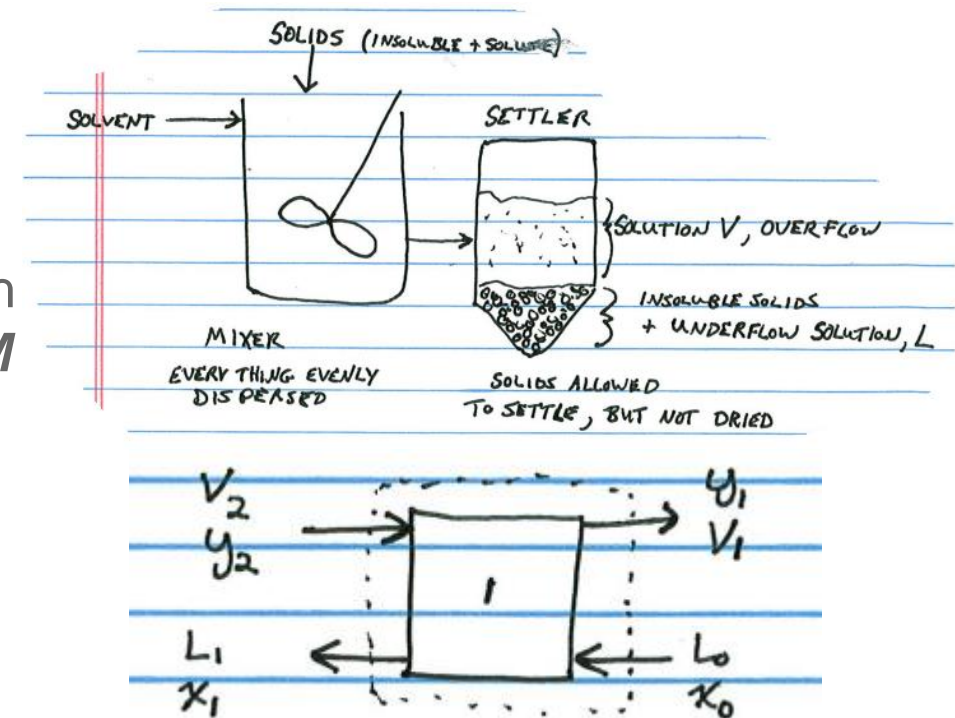 SOLIDS (INSOLUBLE + SOLUTE)
SOLVENT
SETTLER
SOLUTION V, OVERFLOW
n
M
INSOLUBLE SOLIDS
+ UNDERFLOW SOLUTION, L
MIXER
EVERYTHING EVENLY
DISPERSED
SOLIDS ALLOWED
TO SETTLE, BUT NOT DRIED
V2 y1
y2 V1
1
L1 L0
x1 x0